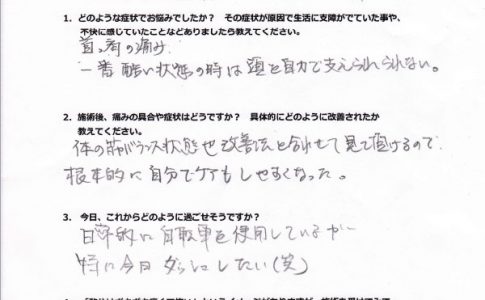 1. どのような症状でお悩みでしたか? その症状が原因で生活に支障がでていた事や、
不快に感じていたことなどありましたら教えてください。
首、肩の痛み
一番酷い状態の時は頭を自力で支えられられない。
2. 施術後、痛みの具合や症状はどうですか? 具体的にどのように改善されたか
教えてください。
体の筋バランス状態也改善法と合わせて見て頂けるので、
根本的に自分でケアもしやすくなった。
3. 今日、これからどのように過ごせそうですか?
日常的に自転車を使用しているが
特に今日ダッシュしたい(笑)